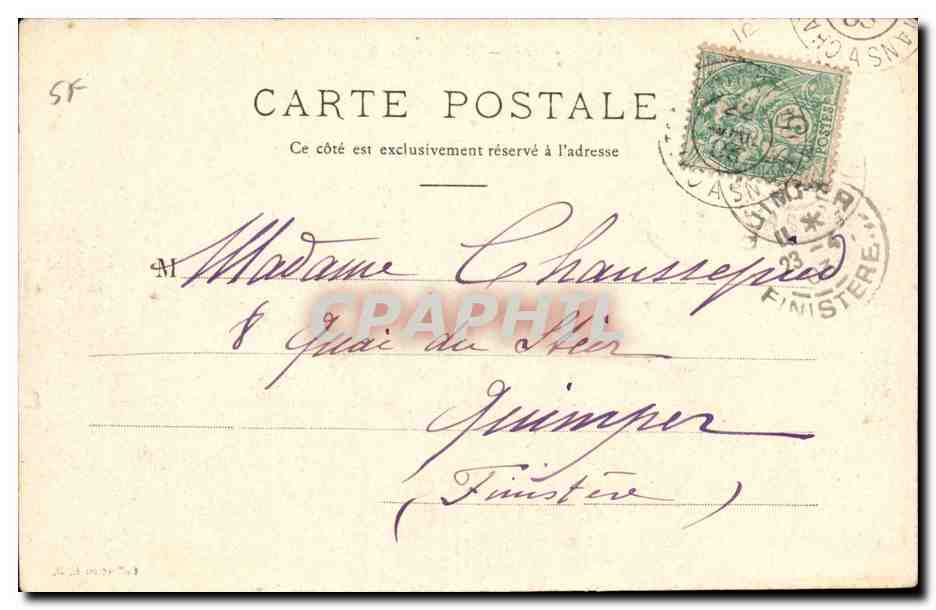 5F
CARTE POSTALE
Ce côté est exclusivement réservé à l'adresse
5
POSTES
22
03
QUIMPER
23
FINISTERE
M Madame Chaussepied
8 Quai du Steir
Quimper
(Finistère)
CPAPHIL